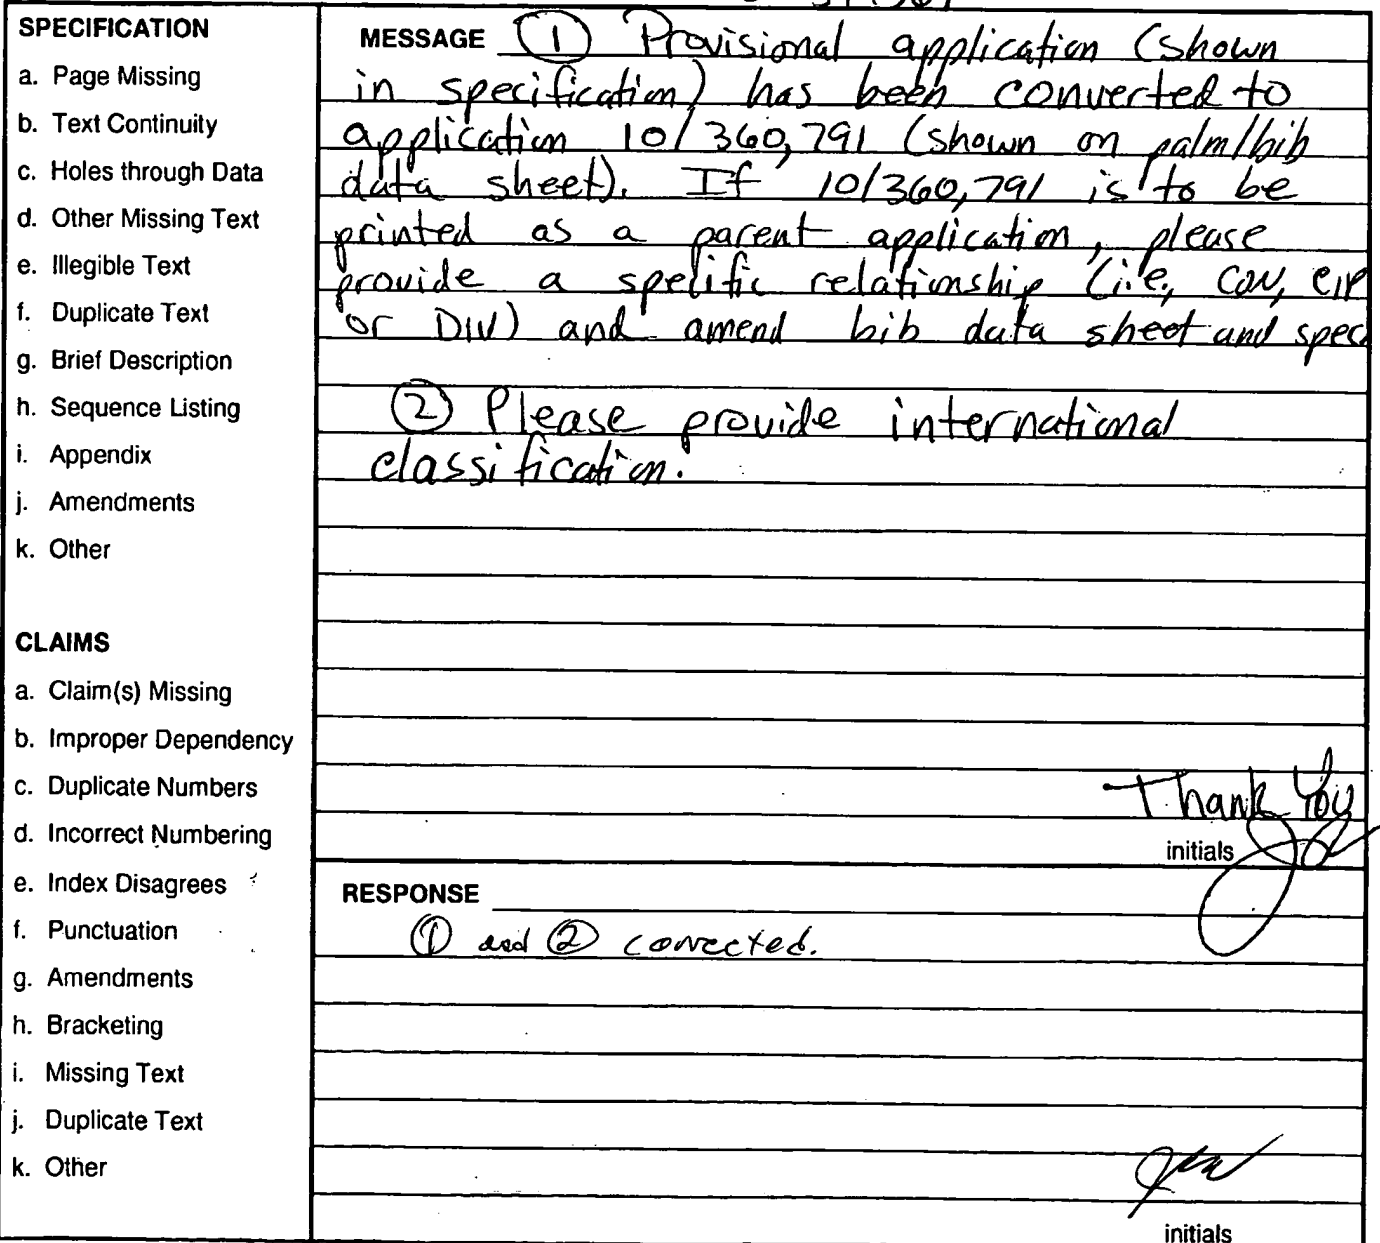 SPECIFICATION
a. Page Missing
b. Text Continuity
c. Holes through Data
d. Other Missing Text
e. Illegible Text
f. Duplicate Text
g. Brief Description
h. Sequence Listing
i. Appendix
j. Amendments
k. Other
CLAIMS
a. Claim(s) Missing
b. Improper Dependency
c. Duplicate Numbers
d. Incorrect Numbering
e. Index Disagrees
f. Punctuation
g. Amendments
h. Bracketing
i. Missing Text
j. Duplicate Text
k. Other
MESSAGE ① Provisional application (shown
in specification) has been converted to
application 10/360,791 (shown on palm/bib
data sheet). If 10/360,791 is to be
printed as a parent application, please
provide a specific relationship (i.e., CON, CIP
or DIV) and amend bib data sheet and spec
② Please provide international
classification.
Thank You
initials
RESPONSE
① and ② corrected.
initials